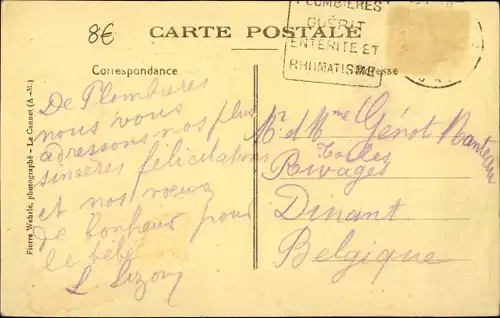 8€
CARTE POSTALE
PLOMBIÈRES
GUÉRIT
ENTÉRITE ET
RHUMATISME
Correspondance
Adresse
De Plombières
nous vous
adressons nos plus
sincères félicitations
et nos vœux
de bonheur pour
le bébé
Mr et Mme Génot
Rivages
Dinant
Belgique
Pierre Wehrlé, photographe - Le Cannet (A.-M.)